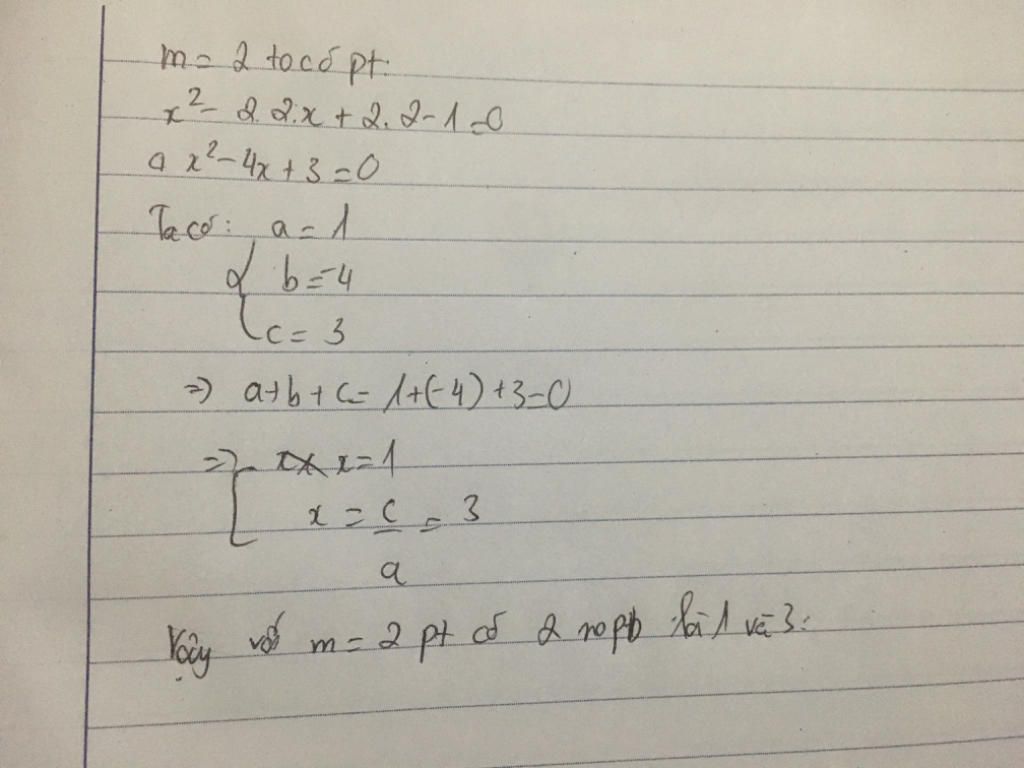 m = 2 ta có pt:
x² - 2.2.x + 2.2 - 1 = 0
a x² - 4x + 3 = 0
Ta có: a = 1
b = -4
c = 3
=> a + b + c = 1 + (-4) + 3 = 0
=> x = 1
x = c/a = 3
Vậy với m = 2 pt có 2 nopb là 1 và 3.